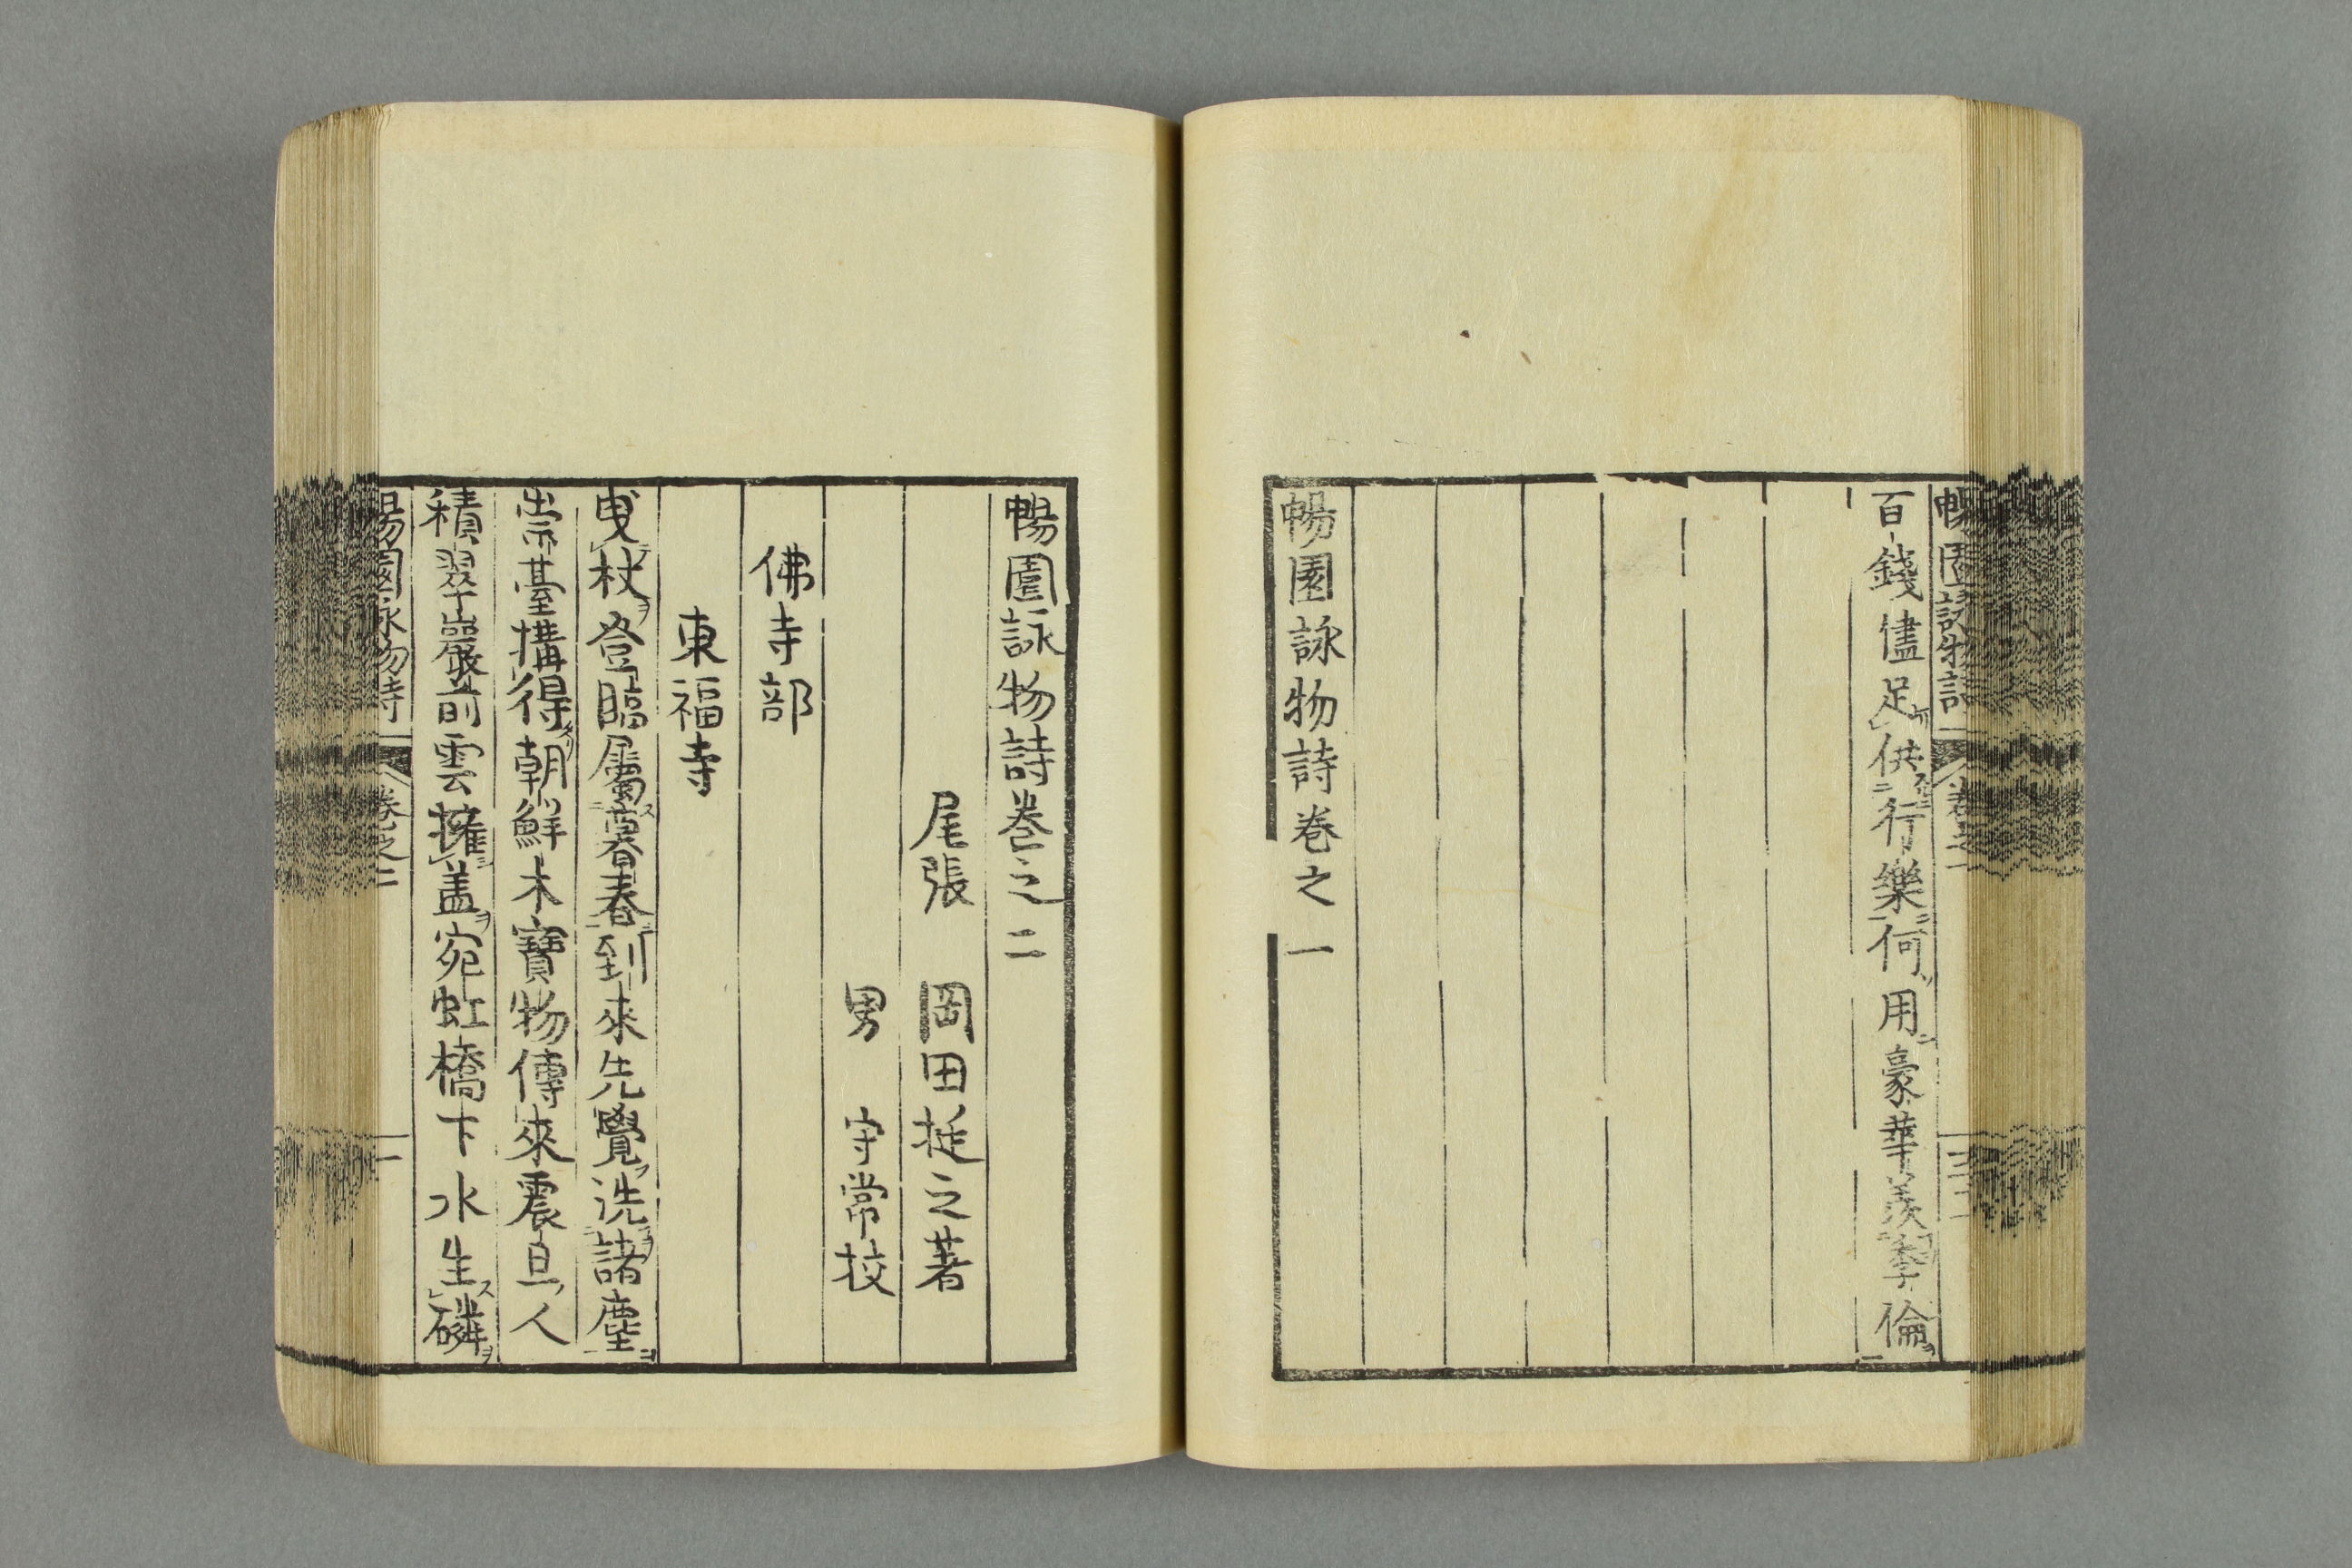 百錢儘足供行樂何用豪華羨季倫
暢園詠物詩卷之一
暢園詠物詩卷之二
尾張　岡田挺之著
男　守常挍
佛寺部
東福寺
曳杖登臨屬暮春到來先覺洗諸塵
崇臺搆得朝鮮木寶物傳來震旦人
積翠巖前雲擁盖宛虹橋下水生磷
暢園詠物詩　卷之二